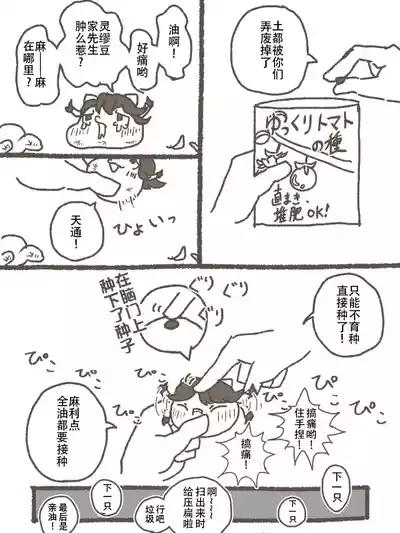 土都被你们
弄废掉了
ゆっくりトマト
の種
直まき、
堆肥OK!
油啊！
好痛哟
灵缪豆
家先生
肿么惹？
麻——麻
在哪里？
天通！
ひょいっ
只能不育种
直接种了！
ぐりぐり
ぐりぐり
在脑门上
种下了种子
ぴこ
ぴこ
ぴこ
ぴこ
ぴこ
ぴこ
搞痛哟！
住手捏！
搞痛！
麻利点
全油都要接种
下一只
下一只
啊~~~~
扫出来时
给压扁啦
行吧
垃圾
下一只
最后是
亲油！